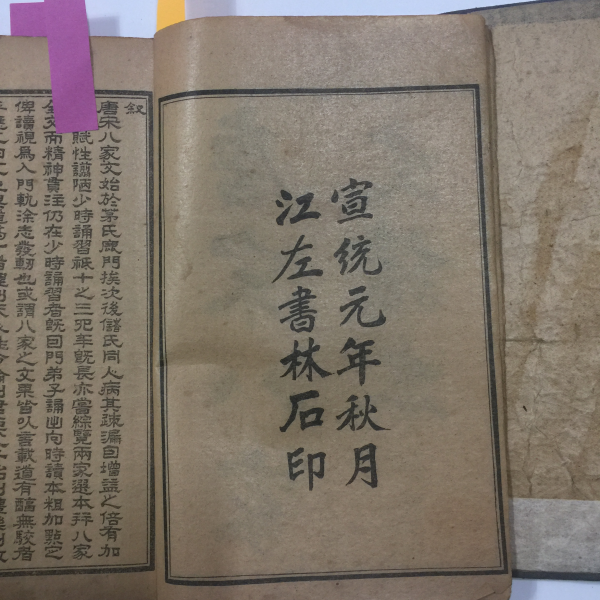 宣統元年秋月
江左書林石印
叙
唐宋八家文始於茅氏鹿門挨次後儲氏同人病其疎漏因增益之倍有加
賦性譾陋少時誦習祇十之三年既長亦嘗綜覽兩家選本拜八家
全文而精神貫注仍在少時誦習者既因門弟子誦出向時讀本粗加點定
俾讀視爲入門軌涂志發軔也或謂八家之文果皆以言載道有醇無駁者